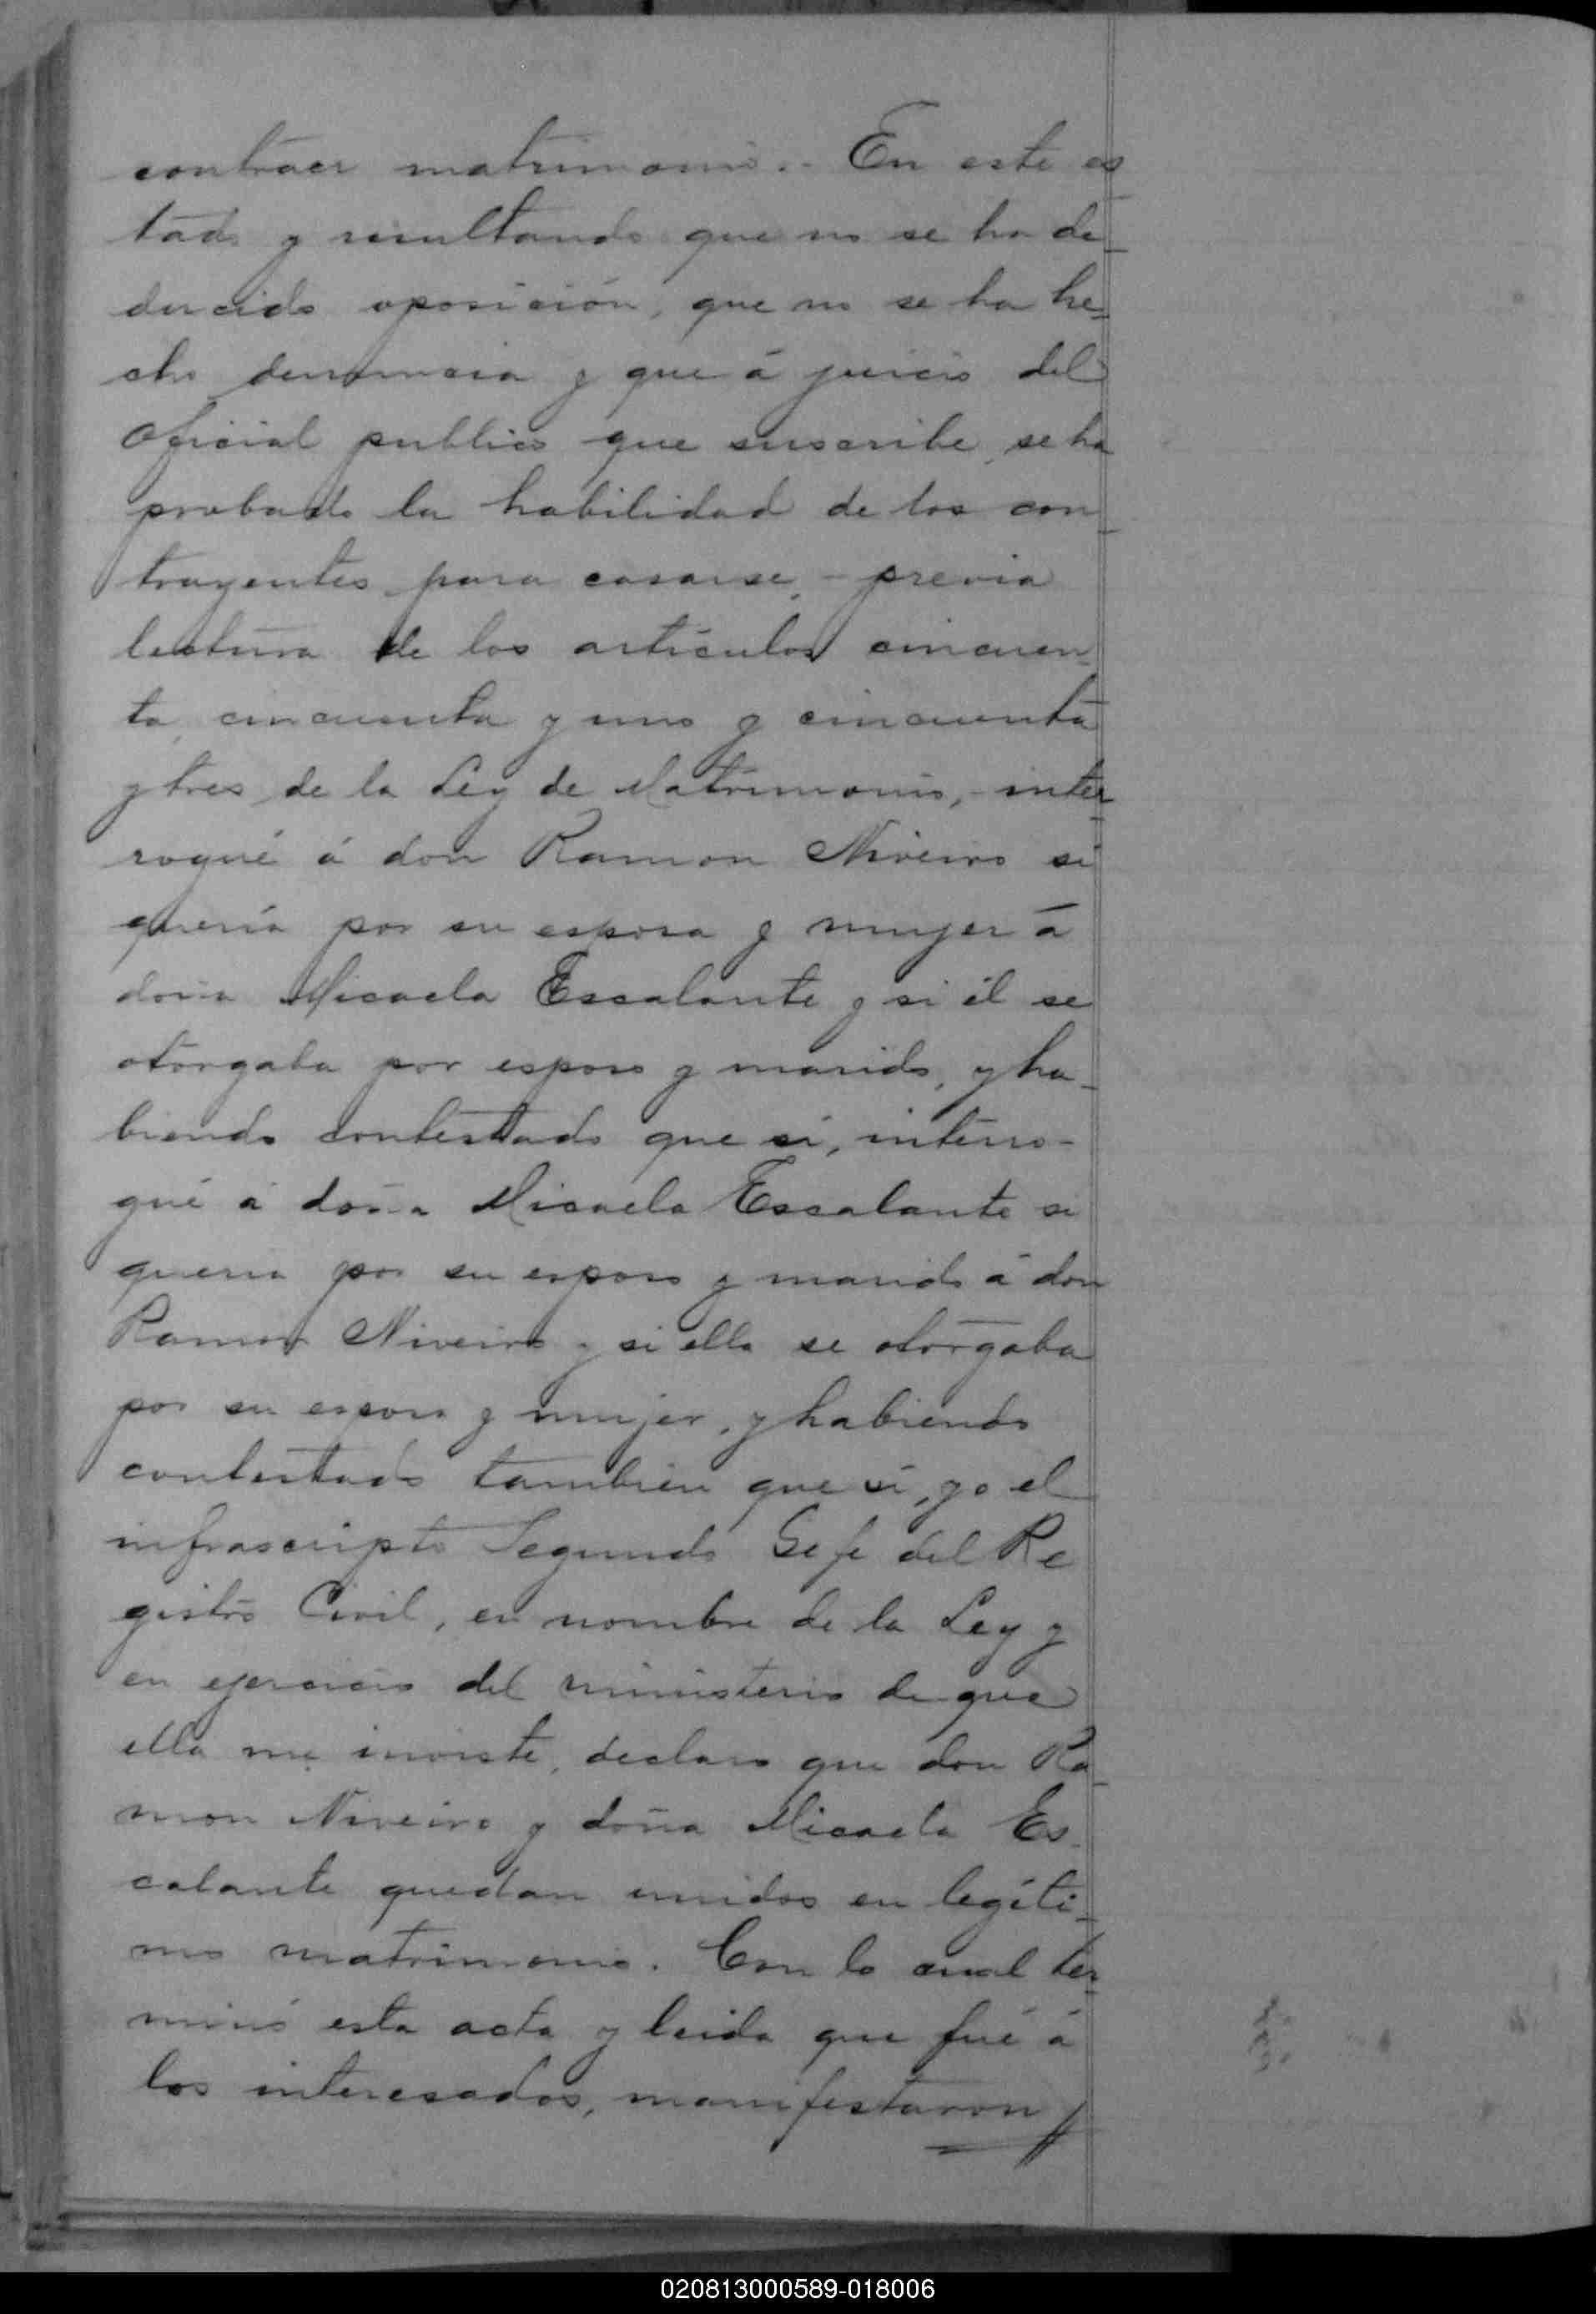 contraer matrimonio.- En este es
tado y resultando que no se ha de-
ducido oposición, que no se ha he-
cho denuncia y que á juicio del
Oficial publico que suscribe, se ha
probado la habilidad de los con-
trayentes para casarse, - previa
lectura de los artículos cincuen-
ta, cincuenta y uno y cincuenta
y tres de la Ley de Matrimonio, - inter
rogué á don Ramon Niveiro si
quería por su esposa y mujer á
doña Micaela Escalante y si él se
otorgaba por esposo y marido, y ha-
biendo contestado que si, interro-
gué a doña Micaela Escalante si
queria por su esposo y marido á don
Ramon Niveiro y si ella se otorgaba
por su esposa y mujer, y habiendo
contestado tambien que si, yo el
infrascripto Segundo Gefe del Re
gistro Civil, en nombre de la Ley y
en ejercicio del ministerio de que
ella me inviste, declaro que don Ra-
mon Niveiro y doña Micaela Es-
calante quedan unidos en legíti-
mo matrimonio. Con lo cual ter-
minó esta acta y leida que fué á
los interesados, manifestaron
020813000589-018006